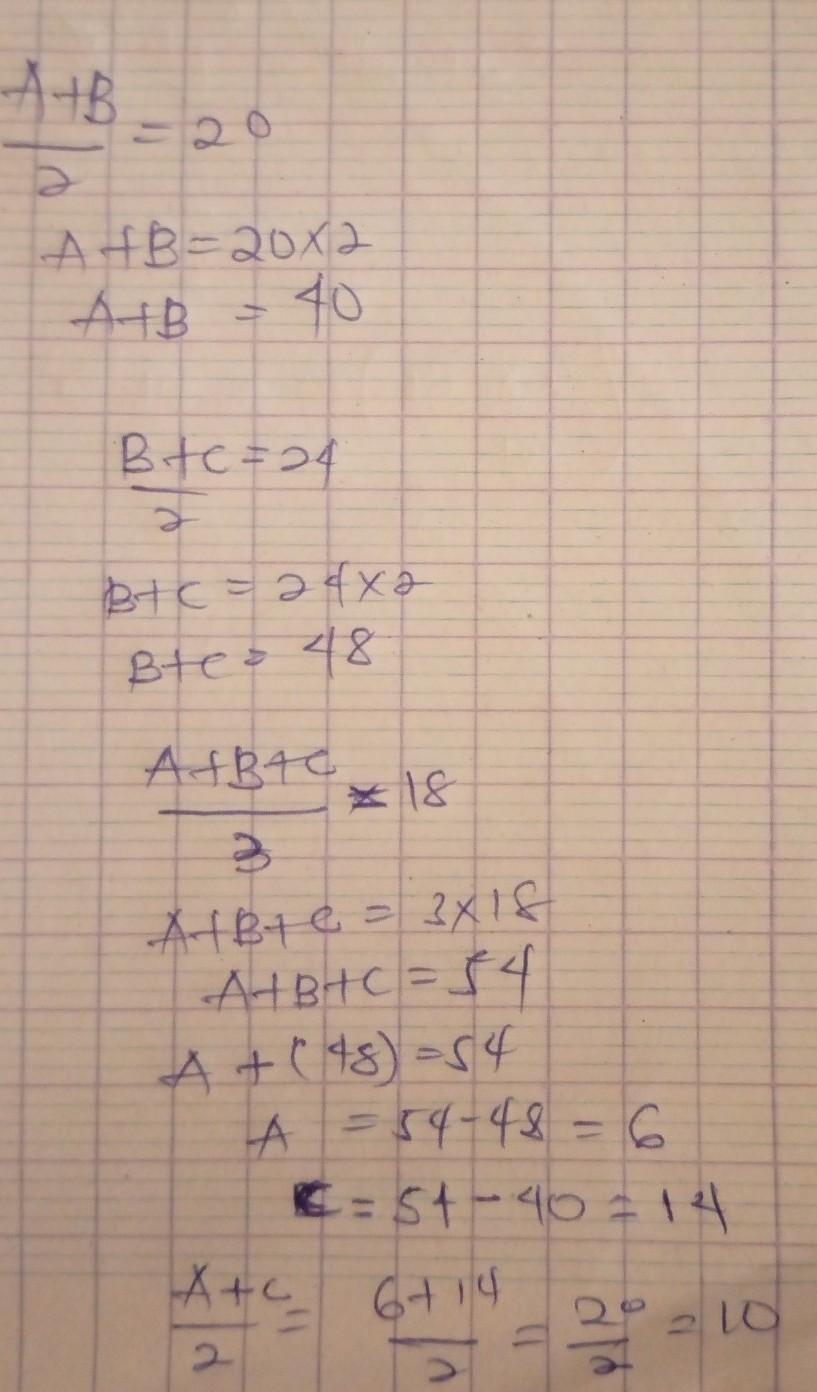 A+B/2 = 20
A+B=20×2
A+B = 40
B+C/2 =24
B+C = 24×2
B+C= 48
A+B+C/3 = 18
A+B+C = 3×18
A+B+C = 54
A + (48) =54
A = 54-48 = 6
C = 54 - 40 = 14
A+C/2 = 6+14/2 = 20/2 = 10